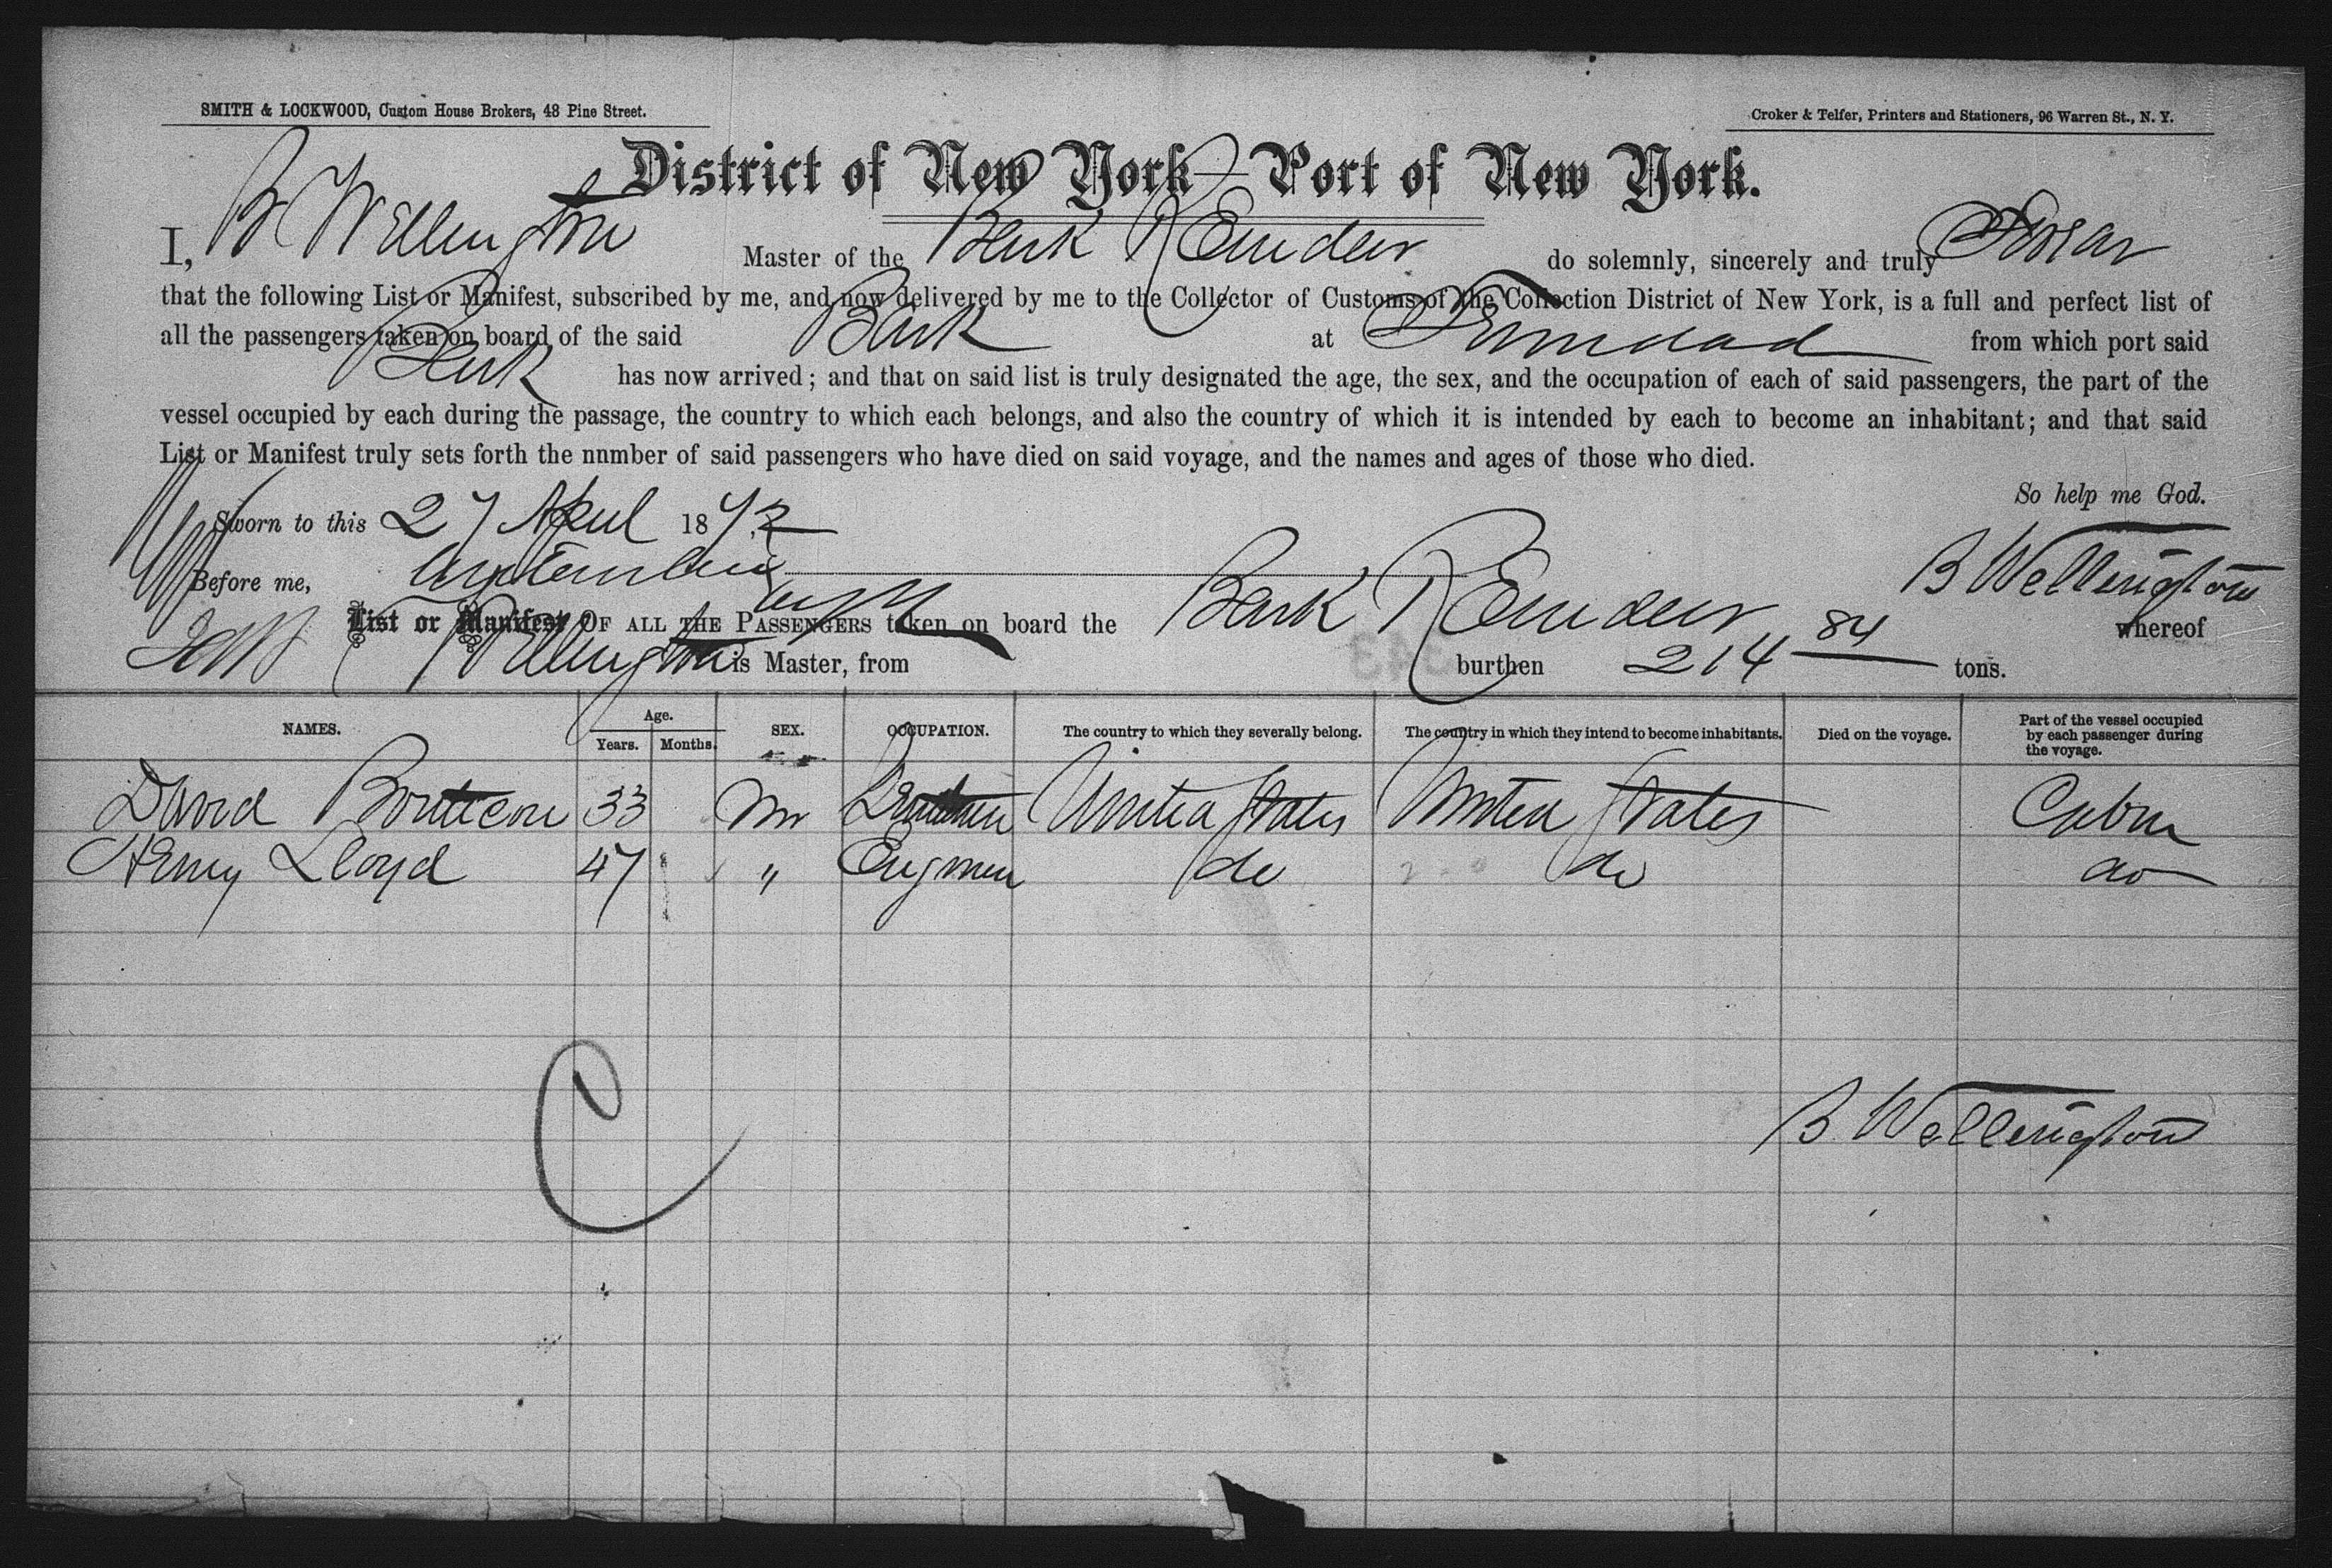 SMITH & LOCKWOOD, Custom House Brokers, 48 Pine Street.
Croker & Telfer, Printers and Stationers, 96 Warren St., N. Y.
District of New York—Port of New York.
I, B Wellington Master of the Bark do solemnly, sincerely and truly Swear
that the following List or Manifest, subscribed by me, and now delivered by me to the Collector of Customs of the Collection District of New York, is a full and perfect list of
all the passengers taken on board of the said Bark at Trinidad from which port said
Bark has now arrived; and that on said list is truly designated the age, the sex, and the occupation of each of said passengers, the part of the
vessel occupied by each during the passage, the country to which each belongs, and also the country of which it is intended by each to become an inhabitant; and that said
List or Manifest truly sets forth the nnmber of said passengers who have died on said voyage, and the names and ages of those who died.
So help me God.
Sworn to this 27 April 18
B Wellington
Before me,
List or Manifest OF ALL THE PASSENGERS taken on board the Bark whereof
Wellington is Master, from burthen 214 84 tons.
NAMES. Age. Years. Months. SEX. OCCUPATION. The country to which they severally belong. The country in which they intend to become inhabitants. Died on the voyage. Part of the vessel occupied by each passenger during the voyage.
David 33 M United States United States Cabin
Henry Lloyd 47 " do do do
C
B. Wellington